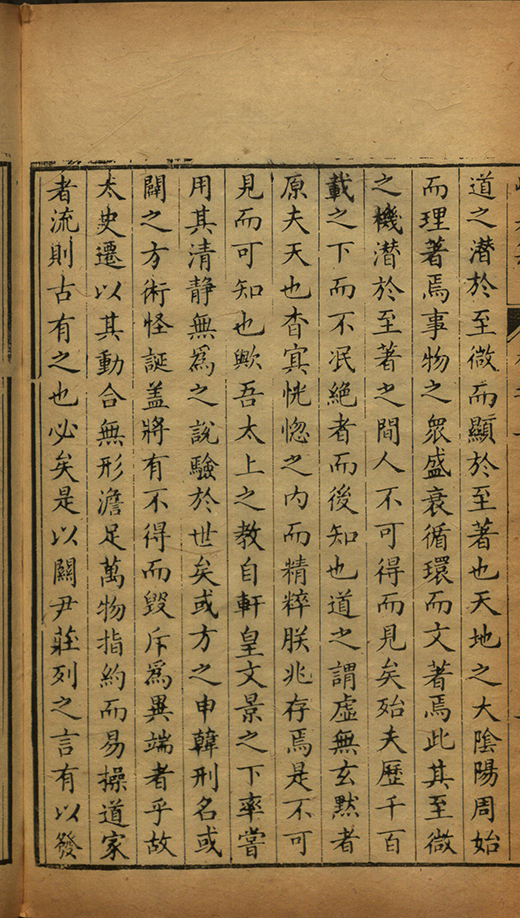 道之潜於至微而顯於至著也天地之大陰陽周始
而理著焉事物之眾盛衰循環而文著焉此其至微
之機潜於至著之間人不可得而見矣殆夫歷千百
載之下而不泯絶者而後知也道之謂虛無玄默者
原夫天也杳寞恍惚之内而精粹朕兆存焉是不可
見而可知也歟吾太上之教自軒皇文景之下率嘗
用其清静無為之說驗於世矣或方之申韓刑名或
闢之方術怪誕盖將有不得而毀斥為異端者乎故
太史遷以其動合無形澹足萬物指約而易操道家
者流則古有之也必矣是以關尹莊列之言有以發